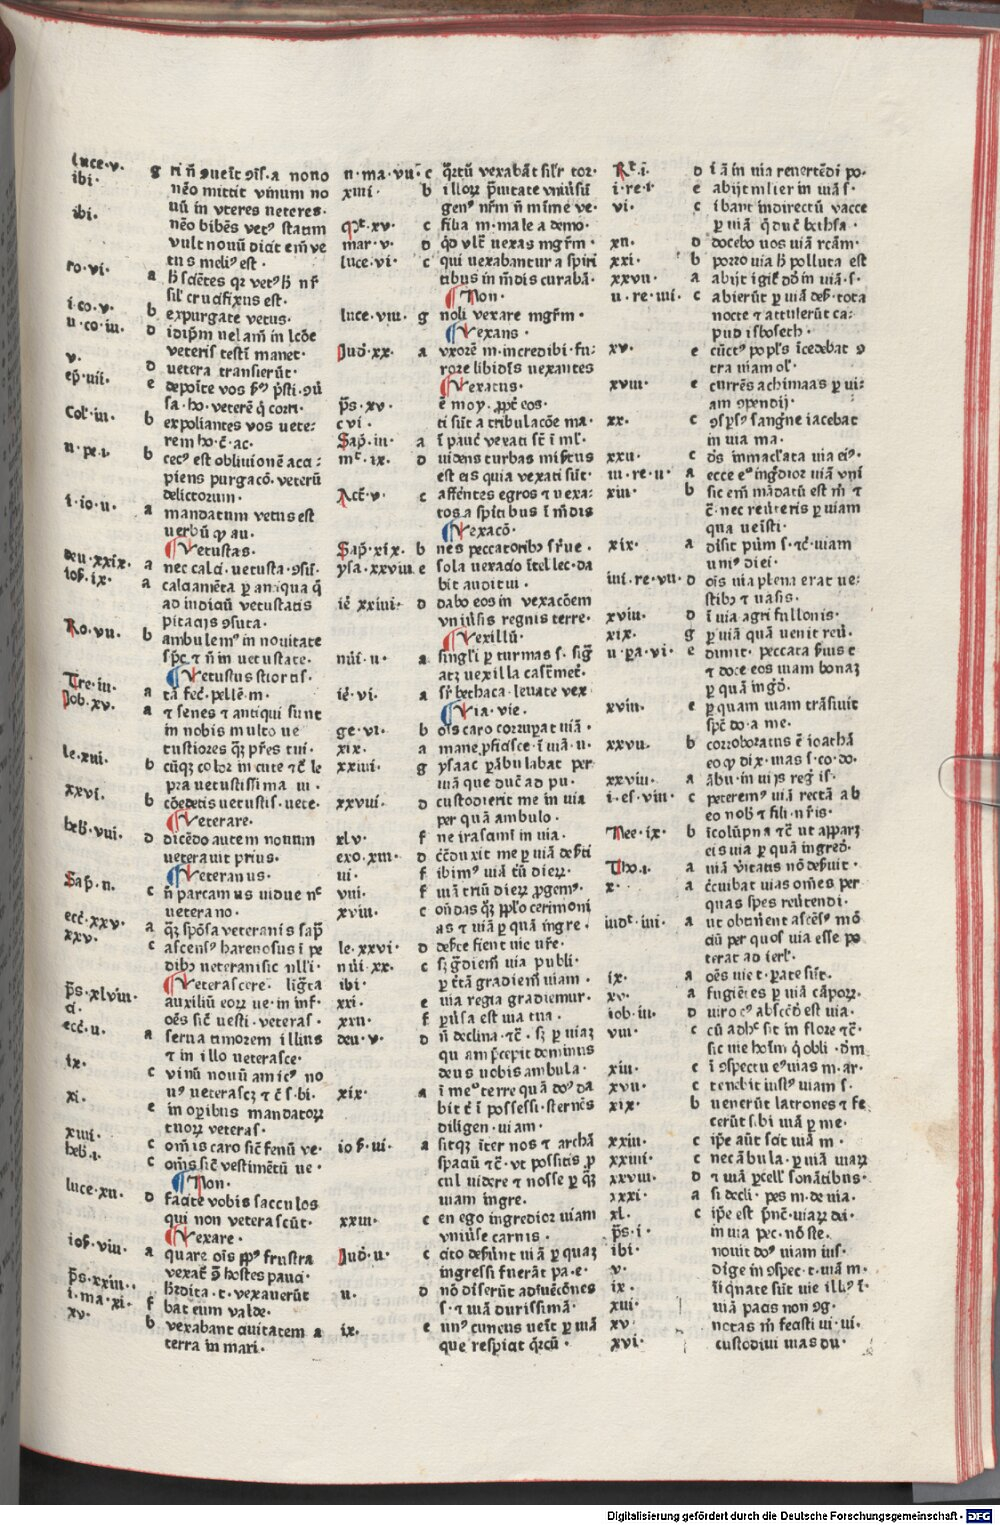 luce·v· g
ibi· nēo mittit vinum no
uū in vteres veteres·
ibi· nēo bibēs vetꝰ statim
vult nouū dicit em̄ ve
tus meliꝰ est·
ro·vi· a
silˀ crucifixus est·
i·co·v· b expurgate vetus·
u·co·iii· d
veteris testī manet·
v· d vetera transierūt·
ep̄·iiii· e
Col·iii· b expoliantes vos vete:
rem ho·c̄·ac·
ii·pe·i· b cecꝰ est obliuionē acci:
piens purgacō·veterū
delictorum·
i·io·ii· a mandatum vetus est
uerbū ꝙ au·
Vetustas·
deu·xxix· a nec calci·vetusta·
ios·ix· a calciamēta ꝑ antiqua q̄
ad indiciū vetustatis
pitaciis ꝯsuta·
Ro·vii· b ambulemꝰ in nouitate
sp̄c ⁊ n̄ in vetustate·
Vetustus stioris·
Tre·iii· a tā fec̄·pellē·m·
Job·xv· a ⁊ senes ⁊ antiqui sunt
in nobis multo ve
tustiores qȝ p̄res tui·
le·xiii· b cūqȝ color in cute ⁊c̄ le
pra vetustissima ui·
xxvi· b cōedetis vetustis·vete·
Veterare·
heb·viii· d dicēdo autem nouum
veterauit prius·
Veteranus·
Sap̄·ii· c n̄ parcamus vidue nᶜ
veterano·
ecc̄·xxv· a qȝ spōsa veteranis sap̄
xxv· c ascensꝰ harenosus ī pe
dibꝰ veterani sic
Veterascere· liḡta
p̄s·xlviii· auxiliū eorꝝ ve·in inf·
ci· oēs sic̄ vesti·veteras·
ecc̄·ii· a serua timorem illius
⁊ in illo veterasce·
ix· c vinū nouū amicꝰ no
uꝰ veterascȝ ⁊ c̄ s·bi·
xi· e in oꝑibus mandatoꝝ
tuoꝝ veteras·
xiiii· c om̄is caro sic̄ fenū ve·
heb·i· c om̄s sic̄ vestimētū ve·
Non·
luce·xii· d facite vobis sacculos
qui non veterascūt·
Vexare·
ios·viii· a quare oīs ppꝰ frustra
p̄s·xxiii· vexat̄ hostes pauci·
i·ma·xi· f bat eum valde·
xv· b vexabant ciuitatem a
terra in mari·
ii·ma·vii· c q̄rtū vexabāt silˀr tor·
xiiii b
gen̄ nr̄m n̄ mīme ve·
m̄t·xv· c filia m·male a demo·
mar·v· d q̄d vlt̄ vexas mgr̄m·
luce·vi· c qui vexabantur a spiri
tibus in mūdis curabā·
Non·
luce·viii· g noli vexare mgr̄m·
Vexans·
Jud̄·xx· a vxorē m·incredibi·fu:
rore libidīs vexantes
Vexatus·
p̄s·xv· ē moy·ꝓpt̄ eos·
cvi· ti sūt a tribulacōe ma·
Sap̄·iii· a ī pauc̄ vexati sc̄ ī ml̄·
mᶜ·ix· d videns turbas misertus
est eis quia vexati sūt·
Act̄·v· c afferētes egros ⁊ vexa:
tos a spitibus ī mūdis
Vexacō·
Sap̄·xix· b nes peccatoribꝰ sr̄ue·
ysa·xxviii· e sola vexacio ītellec·da
bit auditui·
iē·xxiiii· d dabo eos in vexacōem
vniūsis regnis terre·
Vexillū·
nūi·ii· a singl̄i ꝑ turmas s·siḡ
atȝ vexilla cast̄met̄·
iē·vi· a sr̄ bethaca·leuate vex
Via·vie·
ge·vi· b oīs caro corrupat viā·
xix· a mane ꝓficisce·ī viā·u·
xxiiii· g ysaac ꝑābulabat per
viā que duc̄ ad pu·
xxviii· d custodierit me in via
per quā ambulo·
xlv· f ne irascimi in via·
exo·xiii· d
iii· f ibimꝰ viā t̄ū dierꝝ·
viii· f viā triū dierꝝ ꝓgemꝰ·
xviii· c on̄das qȝ ꝓplo cerimoni
as ⁊ viā ꝑ quā ingre·
le·xxvi· d des̄te fient vie vr̄e·
nūi·xx· c sȝ ḡdiem̄ via publi·
ibi· ꝑ c̄tā gradiem̄ viam·
xxi· e via regia gradiemur·
xxii· f ꝑūsa est via tua·
deu·v· d n̄ declina·⁊c̄·sȝ ꝑ viaȝ
quam p̄cepit dominus
deus vobis ambula·
xix· a ī meᵒ terre quā doꝰ da
bit c̄ ī possessi·sternēs
diligen·viam·
ios̄·iii· a sitqȝ īter nos ⁊ archā
spaciū ⁊c̄·vt possitis ꝓ
cul videre ⁊ nosse ꝑ qȝ
viam ingre·
xxiii· c en ego ingredior viam
vniūse carnis·
Jud̄·ii· c cito des̄unt viā ꝑ quaȝ
ingressi fuerāt pa·e·
ii· d nō dīserūt adīuēcōnes
s·⁊ viā durissimā·
ix· e unꝰ cuneus veīt ꝑ viā
que respicit q̄rcū·
Rᶜ·i· d ī ā in via reuertēdi po·
i·re·i· e abijt mlier in viā s·
vi· c ibant in directū vacce
ꝑ viā q̄ duc̄ bethsa·
xii· d docebo vos viā rcām·
xxi· b porro via h̄ polluta est
xxvii· a abijt igit̄ dd̄ in viā·s·
ii·re·iiii· c abierūt ꝑ viā des̄·tota
nocte ⁊ attulerūt ca:
pud isboseth·
xv· e cūctꝰ poplꝰs īcedebat ꝯ
tra viam ol·
xviii· e currēs achimaas ꝑ vi:
am ꝯpendij·
xx· c ꝯspsꝰ sangīne iacebat
in via ma·
xxii· c ds̄ inmaclata via eiꝰ·
iii·re·ii· a ecce eᵒ ingr̄dior viā vnī
xiii· b sic em̄ mādatū est m̄ ⁊
c̄·nec reūteris ꝑ viam
qua veīsti·
xix· a dīsit pūm s·⁊c̄·viam
uniꝰ diei·
iiii·re·vii· d oīs via plena erat ve:
stibꝰ ⁊ vasis·
xviii· d ī via agri fullonis·
xix· g ꝑ viā quā venit reū·
ii·ꝑa·vi· e dimit·peccata s̄uis t
⁊ doce eos viam bonaȝ
ꝑ quā inḡd·
xviii· e ꝑ quam viam trāsiuit
sp̄c do·a me·
xxvii· b corroboratus ē ioathā
eo ꝙ dix·mas s·co·do·
xxviii· a ābu·in vijs reḡ is̄·
i·es·viii· c peteremꝰ viā rectā ab
eo nob̄ ⁊ fili·nr̄is·
Nee·ix· b ī colūpna ⁊c̄ vt apparȝ
eis via ꝑ quā ingred·
Tho·i· a viā v̄itatis nō des̄uit·
x· a c̄cuibat vias om̄es per
quas spes reūtendi·
iudᶜ·iiii· a vt obtīnent ascēsꝰ mō
ciū per quos via esse po
terat ad ierl̄·
ix· a oēs vie t·ꝑate sūt·
xv· a fugiētes ꝑ viā cāporꝝ·
iob·iii· d viro cꝰ abscōd̄ est via·
viii· c cū adhᶜ sit in flore ⁊c̄·
sic vie hoīm q̄ obli·dm̄·
xiii· c ī ꝯspectu eꝰ vias m·ar·
xvii· c tenebit iustꝰ viam s·
xix· b venerūt latrones ⁊ fe
cerūt s·bi viā ꝑ me·
xxiii· c ip̄e aūt scit viā m·
xxiiii· c nec ābula·ꝑ viā viaꝝ
xxviii· d ⁊ viā ꝓcell·sonātibus·
xxxi· a si decli·pes m·de via·
xl· c ip̄e est p̄nc̄·viaꝝ dei·
p̄s·i· in via pec·nō ste·
ibi· nouit doꝰ viam ius·
v· dīge in ꝯspec·t·viā m·
ix· īiq̄nate sūt vie illꝰ ī·
xiii· viā pacis non ꝯg·
xv notas m̄ fecisti vi·vi·
xvi· custodiui vias du·
Digitalisierung gefördert durch die Deutsche Forschungsgemeinschaft · DFG